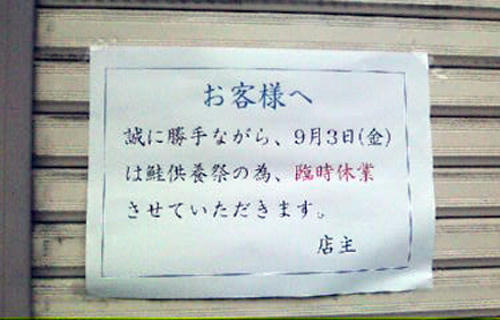 お客様へ
誠に勝手ながら、9月3日(金)
は鮭供養祭の為、臨時休業
させていただきます。
店主